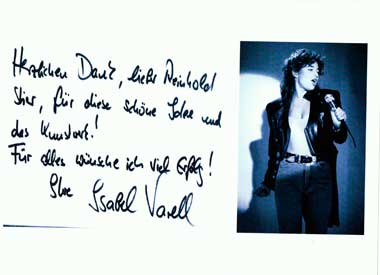 Herzlichen Dank, lieber Reinhold
Stier, für diese schöne Idee und
das Kunstwerk!
Für alles wünsche ich viel Erfolg!
Ihre Isabel Varell